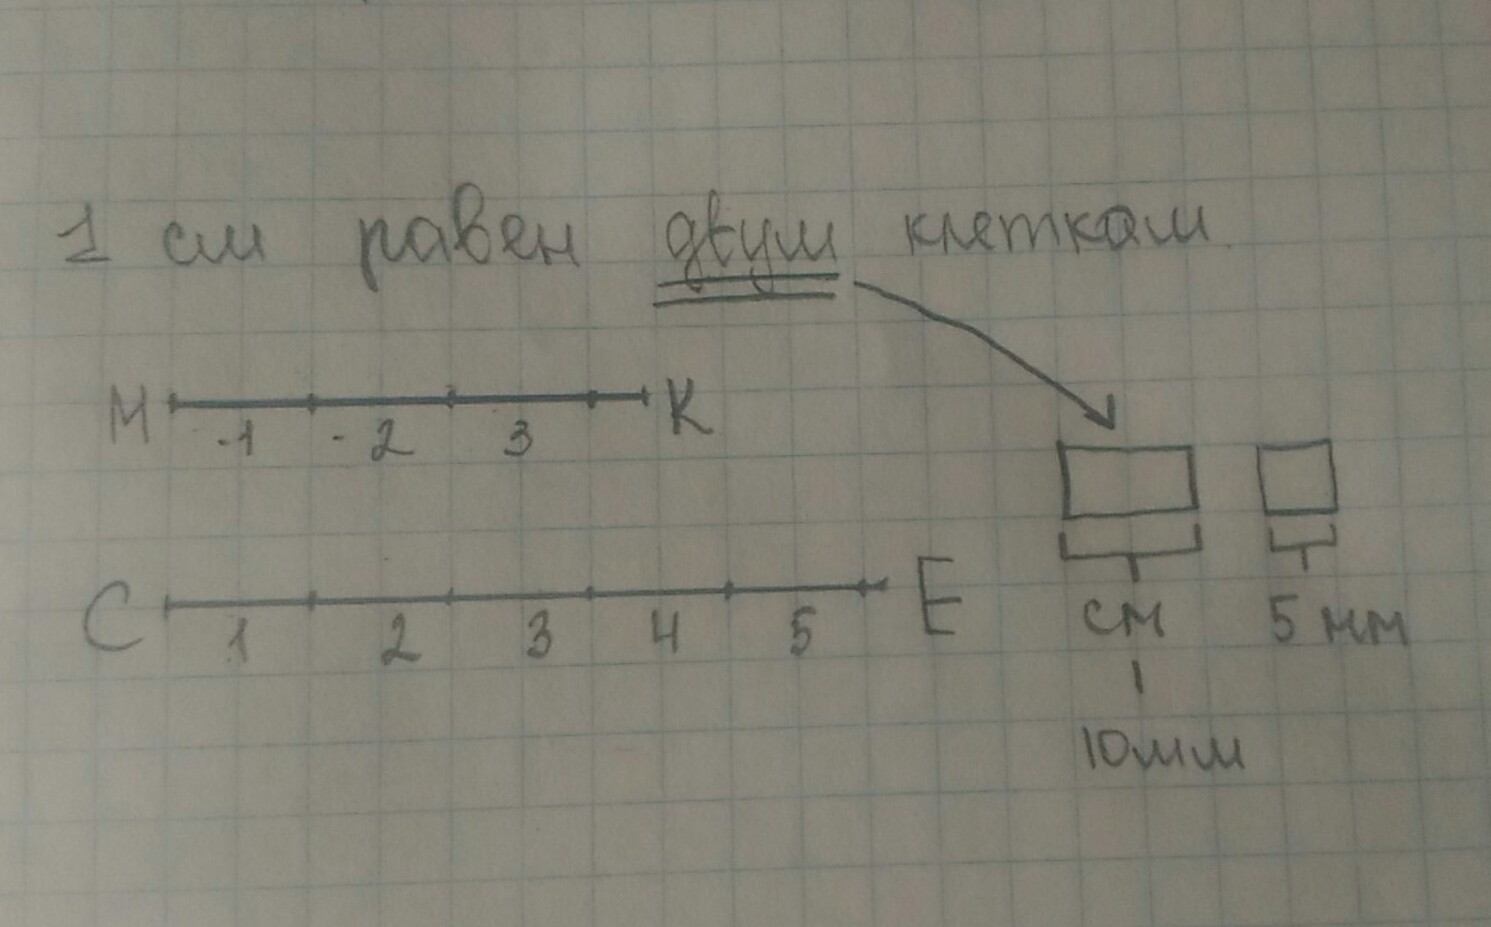 1 см равен двум клеткам.
М К
1 2 3
С Е
1 2 3 4 5
см 5 мм
10мм